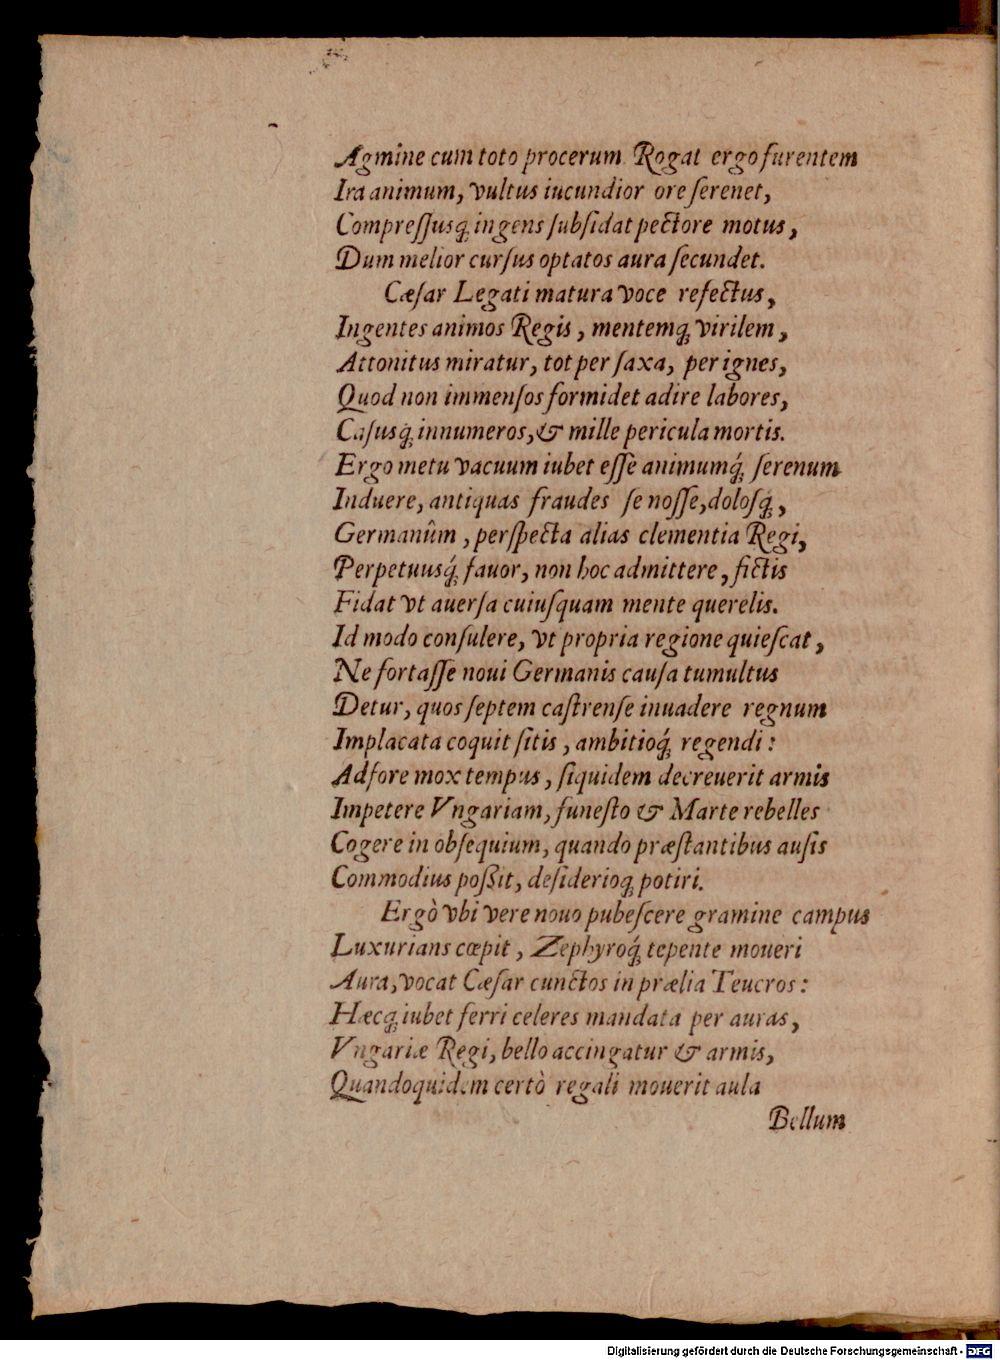 Agmine cum toto procerum. Rogat ergo furentem
Ira animum, vultus iucundior ore ſerenet,
Compreſſusq; ingens ſubſidat pectore motus,
Dum melior curſus optatos aura ſecundet.
Cæſar Legati matura voce refectus,
Ingentes animos Regis, mentemq; virilem,
Attonitus miratur, tot per ſaxa, per ignes,
Quod non immenſos formidet adire labores,
Caſusq́; innumeros, & mille pericula mortis.
Ergo metu vacuum iubet eſſe animumq́; ſerenum
Induere, antiquas fraudes ſe noſſe, doloſq́;,
Germanûm, perſpecta alias clementia Regi,
Perpetuusq́; fauor, non hoc admittere, fictis
Fidat vt auerſa cuiuſquam mente querelis.
Id modo conſulere, vt propria regione quieſcat,
Ne fortaſſe noui Germanis cauſa tumultus
Detur, quos ſeptem caſtrenſe inuadere regnum
Implacata coquit ſitis, ambitioq́; regendi:
Adfore mox tempus, ſiquidem decreuerit armis
Impetere Vngariam, funeſto & Marte rebelles
Cogere in obſequium, quando præſtantibus auſis
Commodius poſſit, deſiderioq; potiri.
Ergò vbi vere nouo pubeſcere gramine campus
Luxurians cœpit, Zephyroq́; tepente moueri
Aura, vocat Cæſar cunctos in prælia Teucros:
Hæcq; iubet ferri celeres mandata per auras,
Vngariæ Regi, bello accingatur & armis,
Quandoquidem certò regali mouerit aula
Bellum
Digitalisierung gefördert durch die Deutsche Forschungsgemeinschaft - DFG